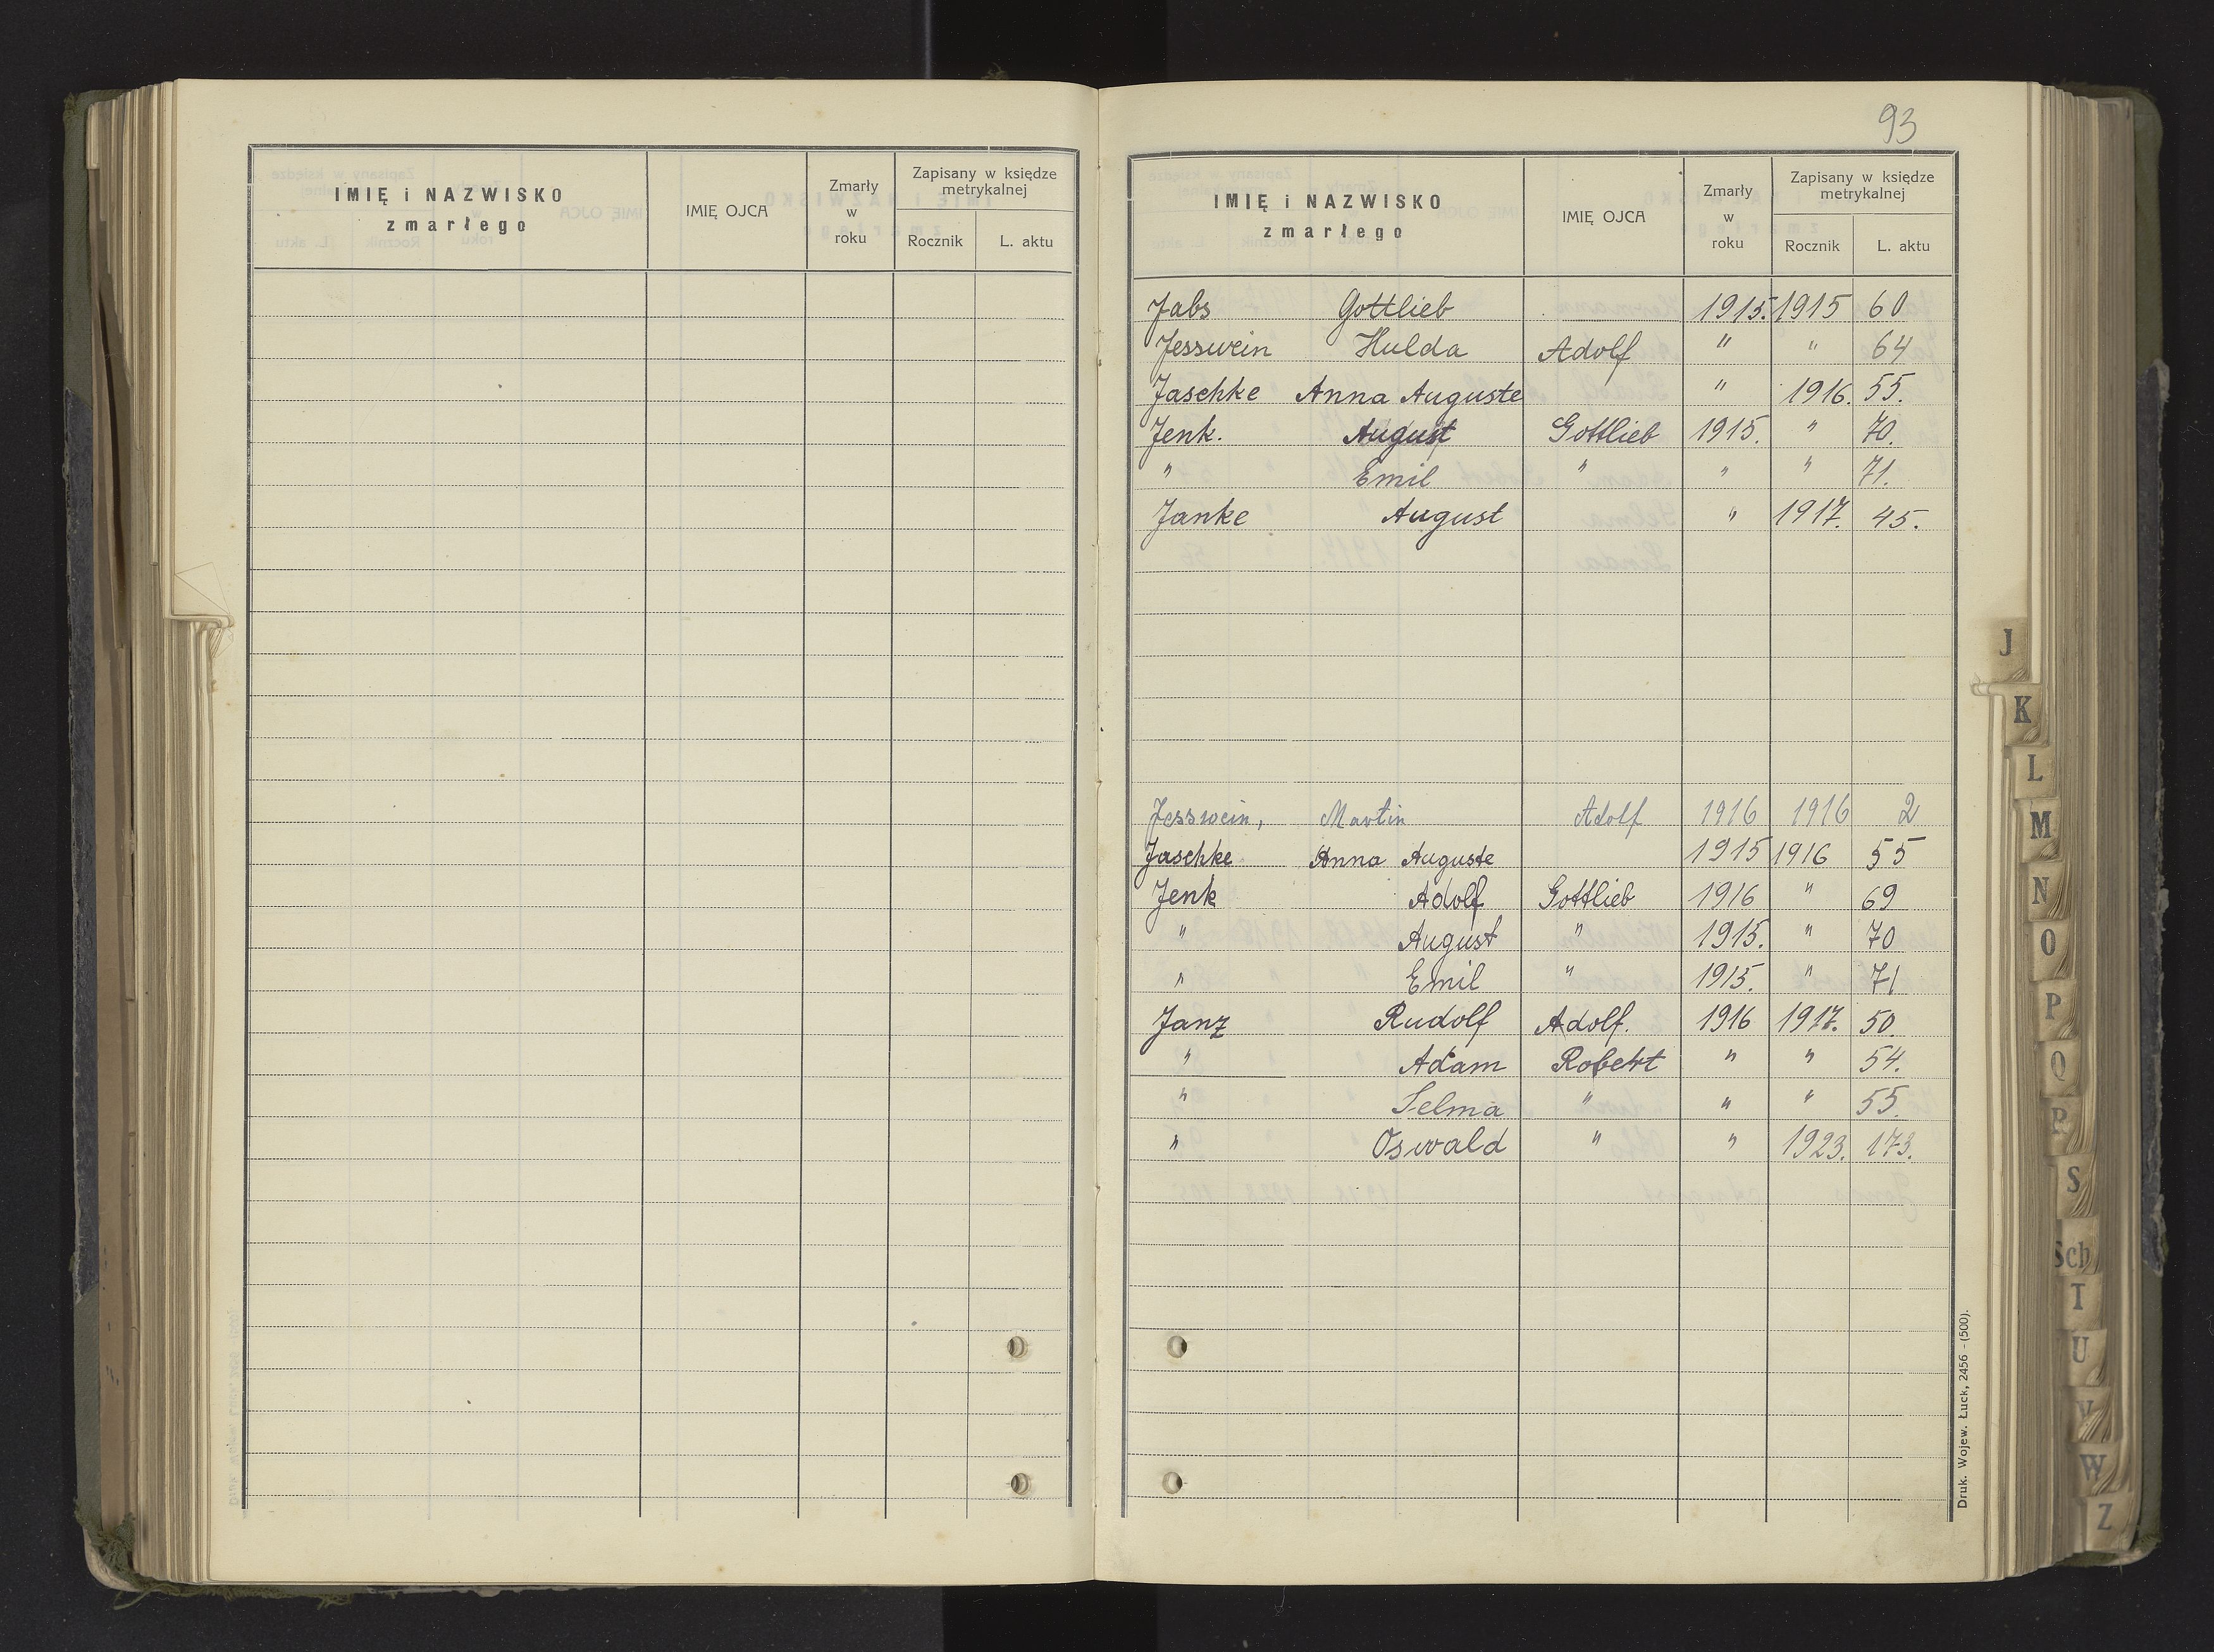 IMIĘ i NAZWISKO
zmarłego
IMIĘ OJCA
Zmarły
w
roku
Zapisany w księdze
metrykalnej
Rocznik L. aktu
93
IMIĘ i NAZWISKO
zmarłego
IMIĘ OJCA
Zmarły
w
roku
Zapisany w księdze
metrykalnej
Rocznik L. aktu
Jabs Gottlieb 1915. 1915 60
Jesswein Hulda Adolf " " 64
Jaschke Anna Auguste " 1916. 55.
Jenk. August Gottlieb 1915. " 70.
" Emil " " " 71.
Janke August " 1917. 45.
Jesswein, Martin Adolf 1916 1916 2
Jaschke Anna Auguste 1915 1916 55
Jenk Adolf Gottlieb 1916 " 69
" August " 1915. " 70
" Emil " 1915. " 71
Janz Rudolf Adolf. 1916 1917. 50
" Adam Robert " " 54.
" Selma " " " 55.
" Oswald " " 1923. 173.
Druk. Wojew. Łuck, 2456 - (500).
J
K
L
M
N
O
P
Q
R
S
Sch
T
U
V
W
Z